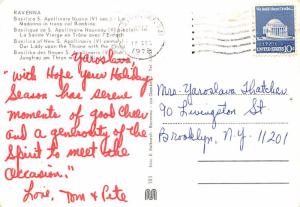 RAVENNA
Basilica S. Apollinare Nuovo (VI sec.) - La
Madonna in trono col Bambino
Basilique de S. Apollinaire Nouveau (VI siècle)
La Sainte Vierge en Trône avec l'Enfant
Basilica of New S. Apollinare (VI Century)
Our Lady upon the Throne with the Child
Basilika des Neuen S.
Jungfrau am Thron
1976
10c
UNITED STATES
Yaroslava,
"With Hope your Holiday
Season has serene
moments of good cheer
and a generosity of the
Spirit to meet the
Occasion."
Love, Tom & Pete
Mrs. Yaroslava Thatcher
90 Livingston St
Brooklyn, N.Y. 11201